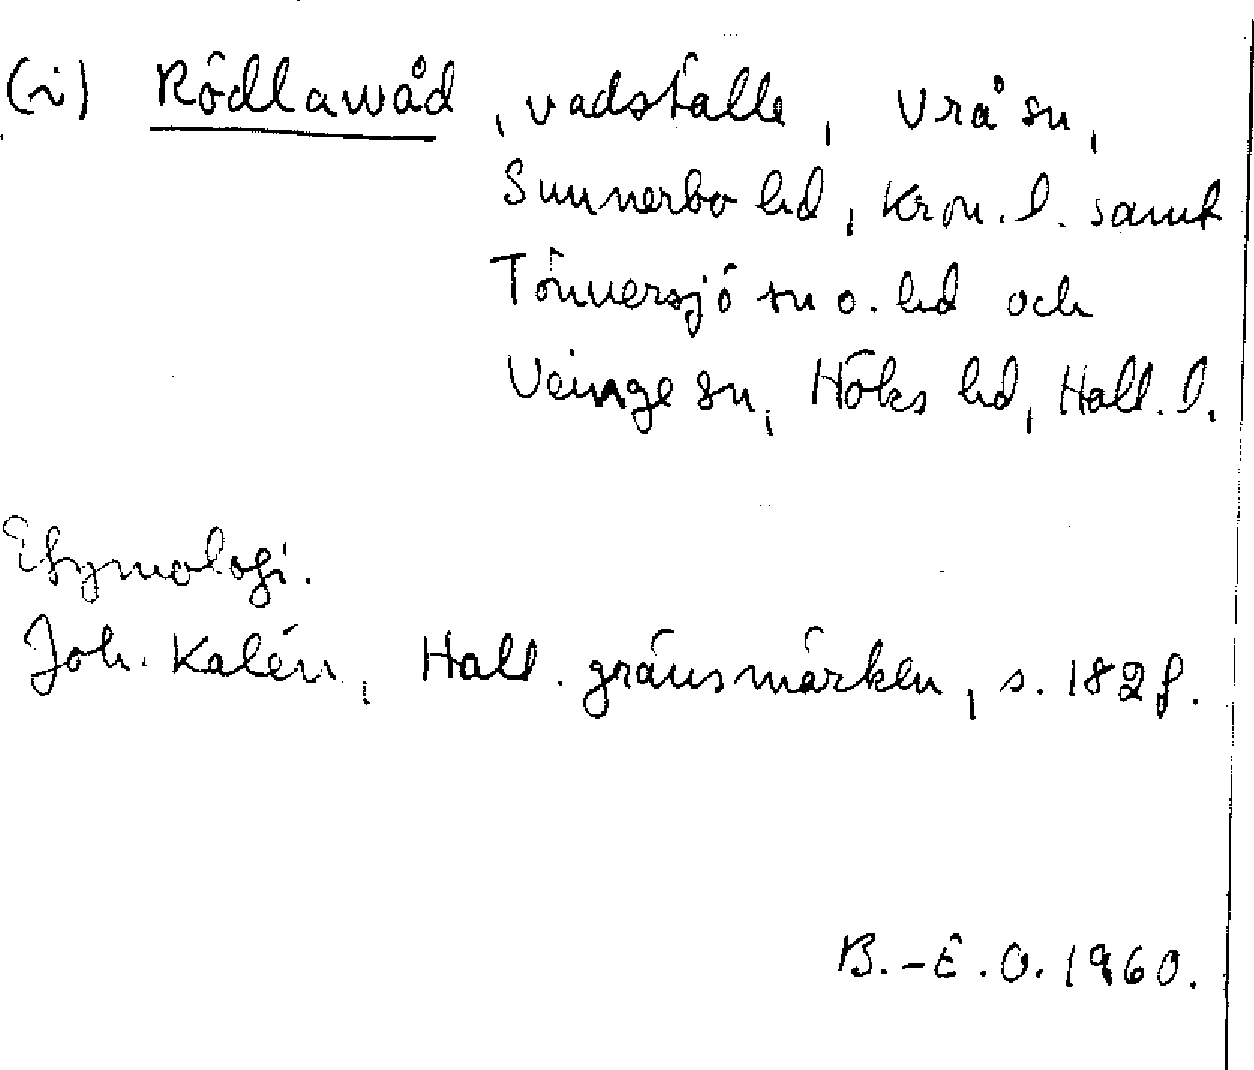 (i) Rödlawåd, vadställe, Vrå sn,
Sunnerbo hd, Kron. l. samt
Tönnersjö sn o. hd och
Veinge sn, Höks hd, Hall. l.
Etymologi.
Joh. Kalén, Hall. gränsmärken, s. 182 f.
B.-E. O. 1960.